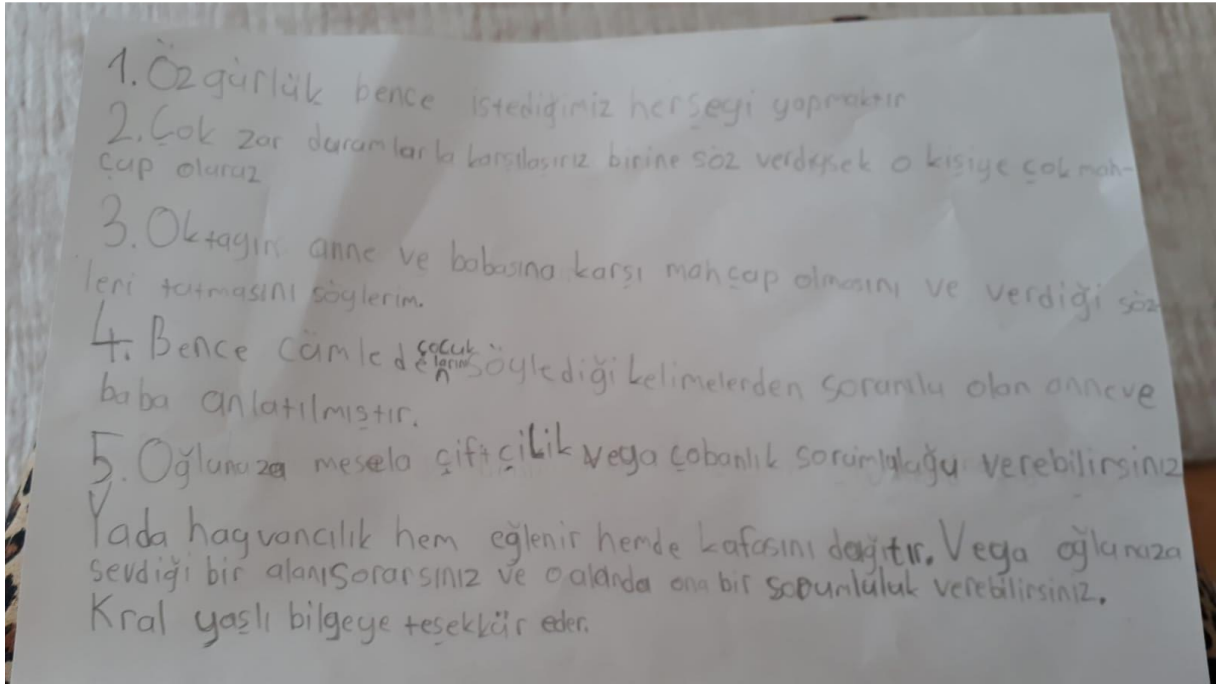 1. Özgürlük bence istediğimiz herşeyi yapmaktır
2. Çok zor durumlarla karşılaşırız birine söz verdiysek o kişiye çok mah-
çup oluruz
3. Oktayın anne ve babasına karşı mahçup olmasını ve verdiği söz
leri tutmasını söylerim.
4. Bence cümlede çocuklarının söylediği kelimelerden sorumlu olan anneve
baba anlatılmıştır.
5. Oğlunuza mesela çiftçilik veya çobanlık sorumluluğu verebilirsiniz
Yada hayvancılık hem eğlenir hemde kafasını dağıtır. Veya oğlunuza
sevdiği bir alanı sorarsınız ve o alanda ona bir sorumluluk verebilirsiniz.
Kral yaşlı bilgeye teşekkür eder.